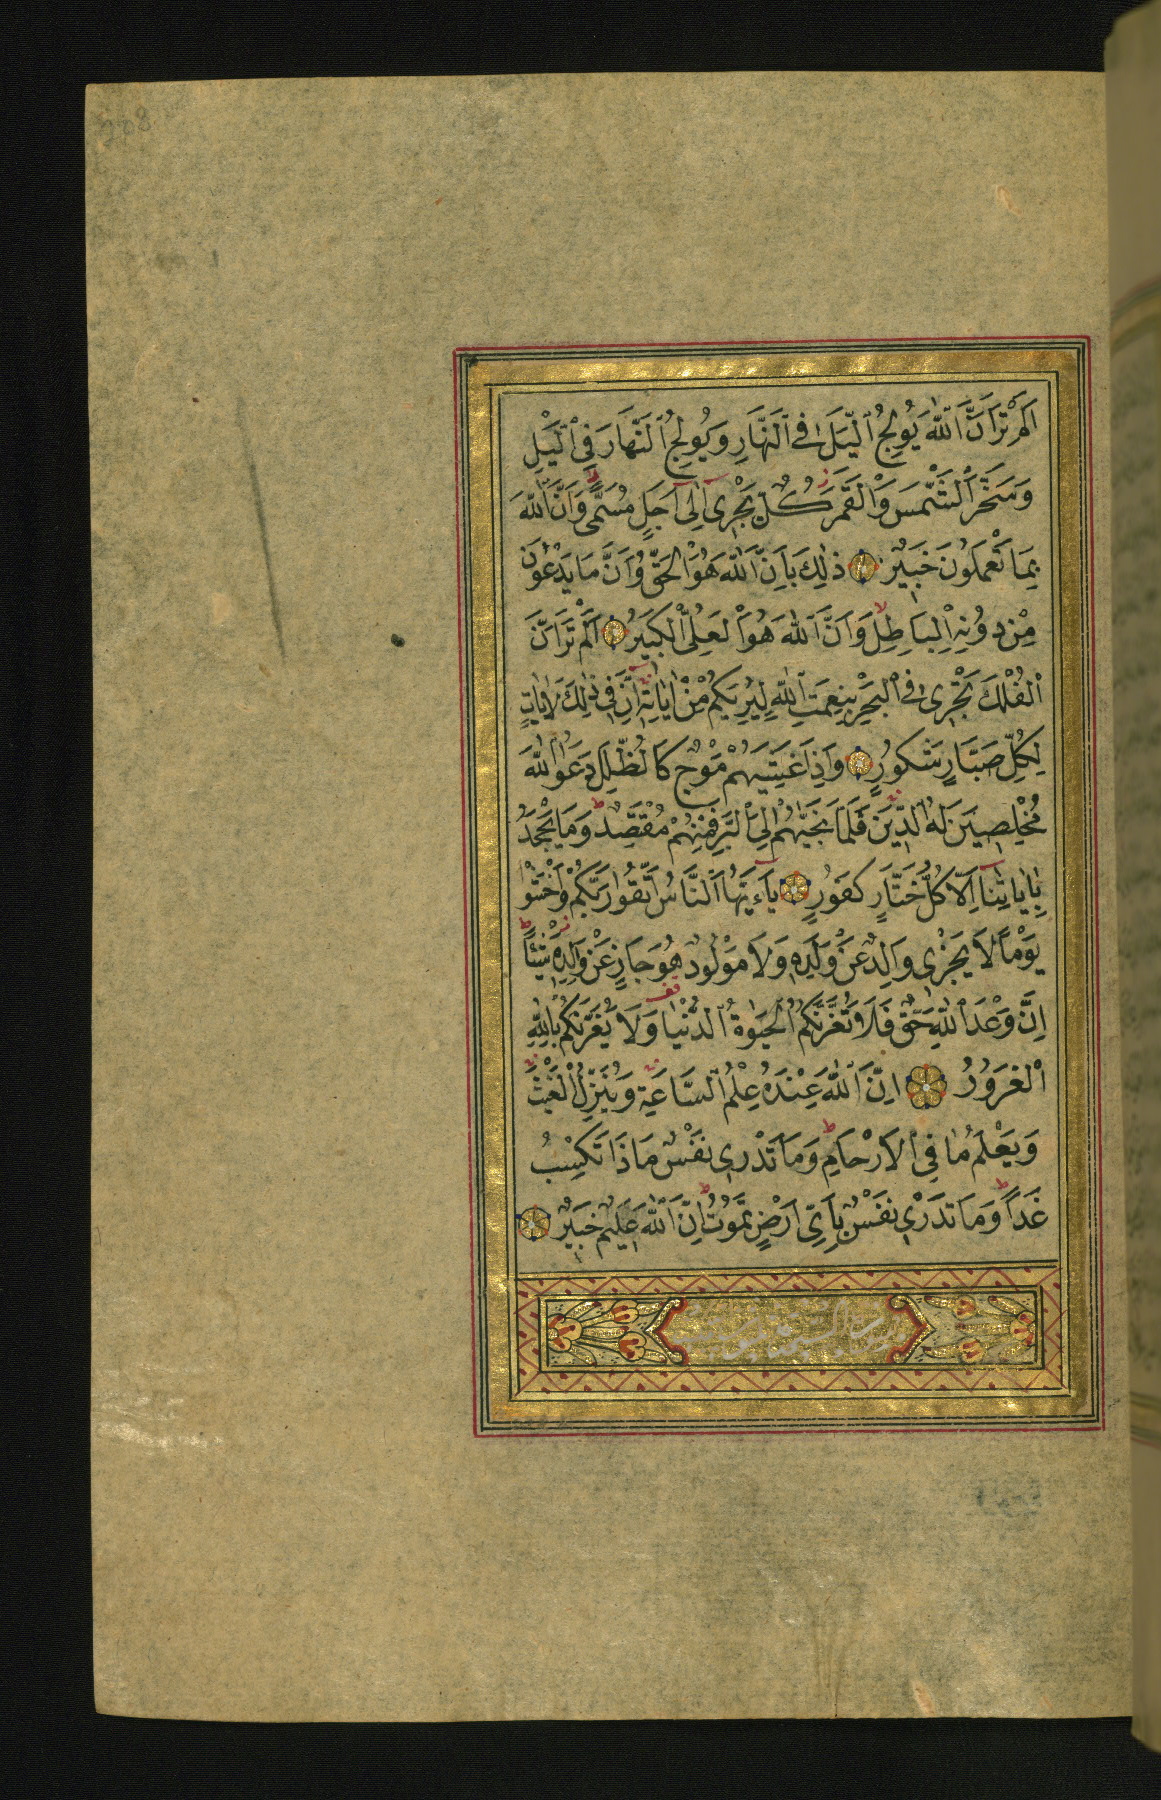 اَلَمْ تَرَ اَنَّ اللّٰهَ يُولِجُ الَّيْلَ فِي النَّهَارِ وَيُولِجُ النَّهَارَ فِي الَّيْلِ
وَسَخَّرَ الشَّمْسَ وَالْقَمَرَ كُلٌّ يَجْرِي اِلٰى اَجَلٍ مُسَمًّى وَاَنَّ اللّٰهَ
بِمَا تَعْمَلُونَ خَبِيرٌ ذٰلِكَ بِاَنَّ اللّٰهَ هُوَ الْحَقُّ وَاَنَّ مَا يَدْعُونَ
مِنْ دُونِهِ الْبَاطِلُ وَاَنَّ اللّٰهَ هُوَ الْعَلِيُّ الْكَبِيرُ اَلَمْ تَرَ اَنَّ
الْفُلْكَ تَجْرِي فِي الْبَحْرِ بِنِعْمَتِ اللّٰهِ لِيُرِيَكُمْ مِنْ اٰيَاتِهِ اِنَّ فِي ذٰلِكَ لَاٰيَاتٍ
لِكُلِّ صَبَّارٍ شَكُورٍ وَاِذَا غَشِيَهُمْ مَوْجٌ كَالظُّلَلِ دَعَوُا اللّٰهَ
مُخْلِصِينَ لَهُ الدِّينَ فَلَمَّا نَجَّيٰهُمْ اِلَى الْبَرِّ فَمِنْهُمْ مُقْتَصِدٌ وَمَا يَجْحَدُ
بِاٰيَاتِنَا اِلَّا كُلُّ خَتَّارٍ كَفُورٍ يَاءَيُّهَا النَّاسُ اتَّقُوا رَبَّكُمْ وَاخْشَوْا
يَوْمًا لَا يَجْزِي وَالِدٌ عَنْ وَلَدِهِ وَلَا مَوْلُودٌ هُوَ جَازٍ عَنْ وَالِدِهِ شَيْئًا
اِنَّ وَعْدَ اللّٰهِ حَقٌّ فَلَا تَغُرَّنَّكُمُ الْحَيٰوةُ الدُّنْيَا وَلَا يَغُرَّنَّكُمْ بِاللّٰهِ
الْغَرُورُ اِنَّ اللّٰهَ عِنْدَهُ عِلْمُ السَّاعَةِ وَيُنَزِّلُ الْغَيْثَ
وَيَعْلَمُ مَا فِي الْاَرْحَامِ وَمَا تَدْرِي نَفْسٌ مَاذَا تَكْسِبُ
غَدًا وَمَا تَدْرِي نَفْسٌ بِاَيِّ اَرْضٍ تَمُوتُ اِنَّ اللّٰهَ عَلِيمٌ خَبِيرٌ